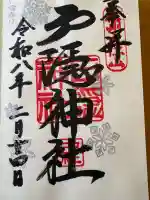 奉拝
戸隠神社
令和八年二月十四日